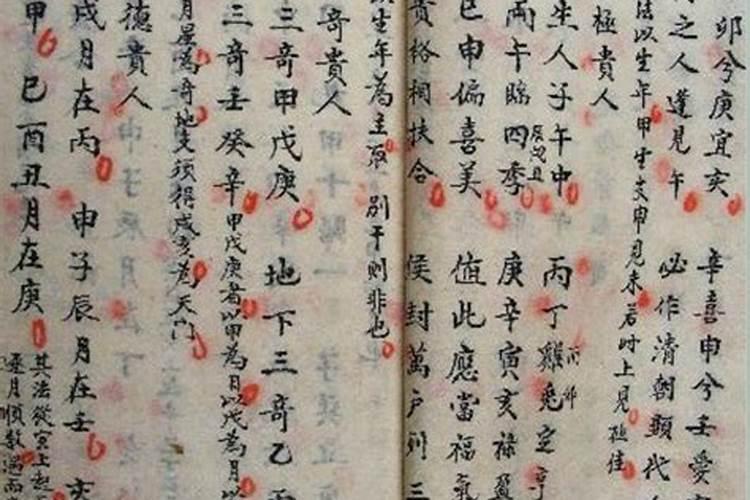 卯兮庚宜亥 辛喜申兮壬愛
之人達見午 必作清朝顯代
法以生年甲生支申見未若时上見極佳
極貴人
生人子午中 丙丁雞兔定
丙午臨四季辰戌丑 庚辛寅亥祿
巳申偏喜美 值此應當福氣
貴格相扶合 侯封萬户列三
生年為主取別干則非也
奇貴人
三奇甲戊庚 地下三奇乙丙
三奇壬癸辛 甲戊庚者以甲為日以戊為月以
月星為奇地支須得戌亥為天門
德貴人
戌月在丙 申子辰月在壬 亥
甲 巳酉丑月在庚 其法從寅上起
逐月順數